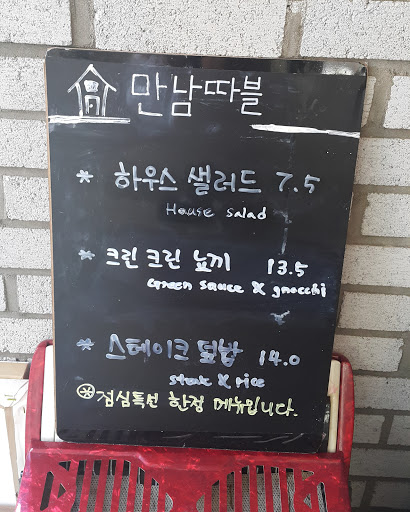 만남따블
* 하우스 샐러드 7.5
House salad
* 크린크린 뇨끼 13.5
Green sauce & gnocchi
* 스테이크 덮밥 14.0
steak & rice
※점심특선 한정 메뉴입니다.